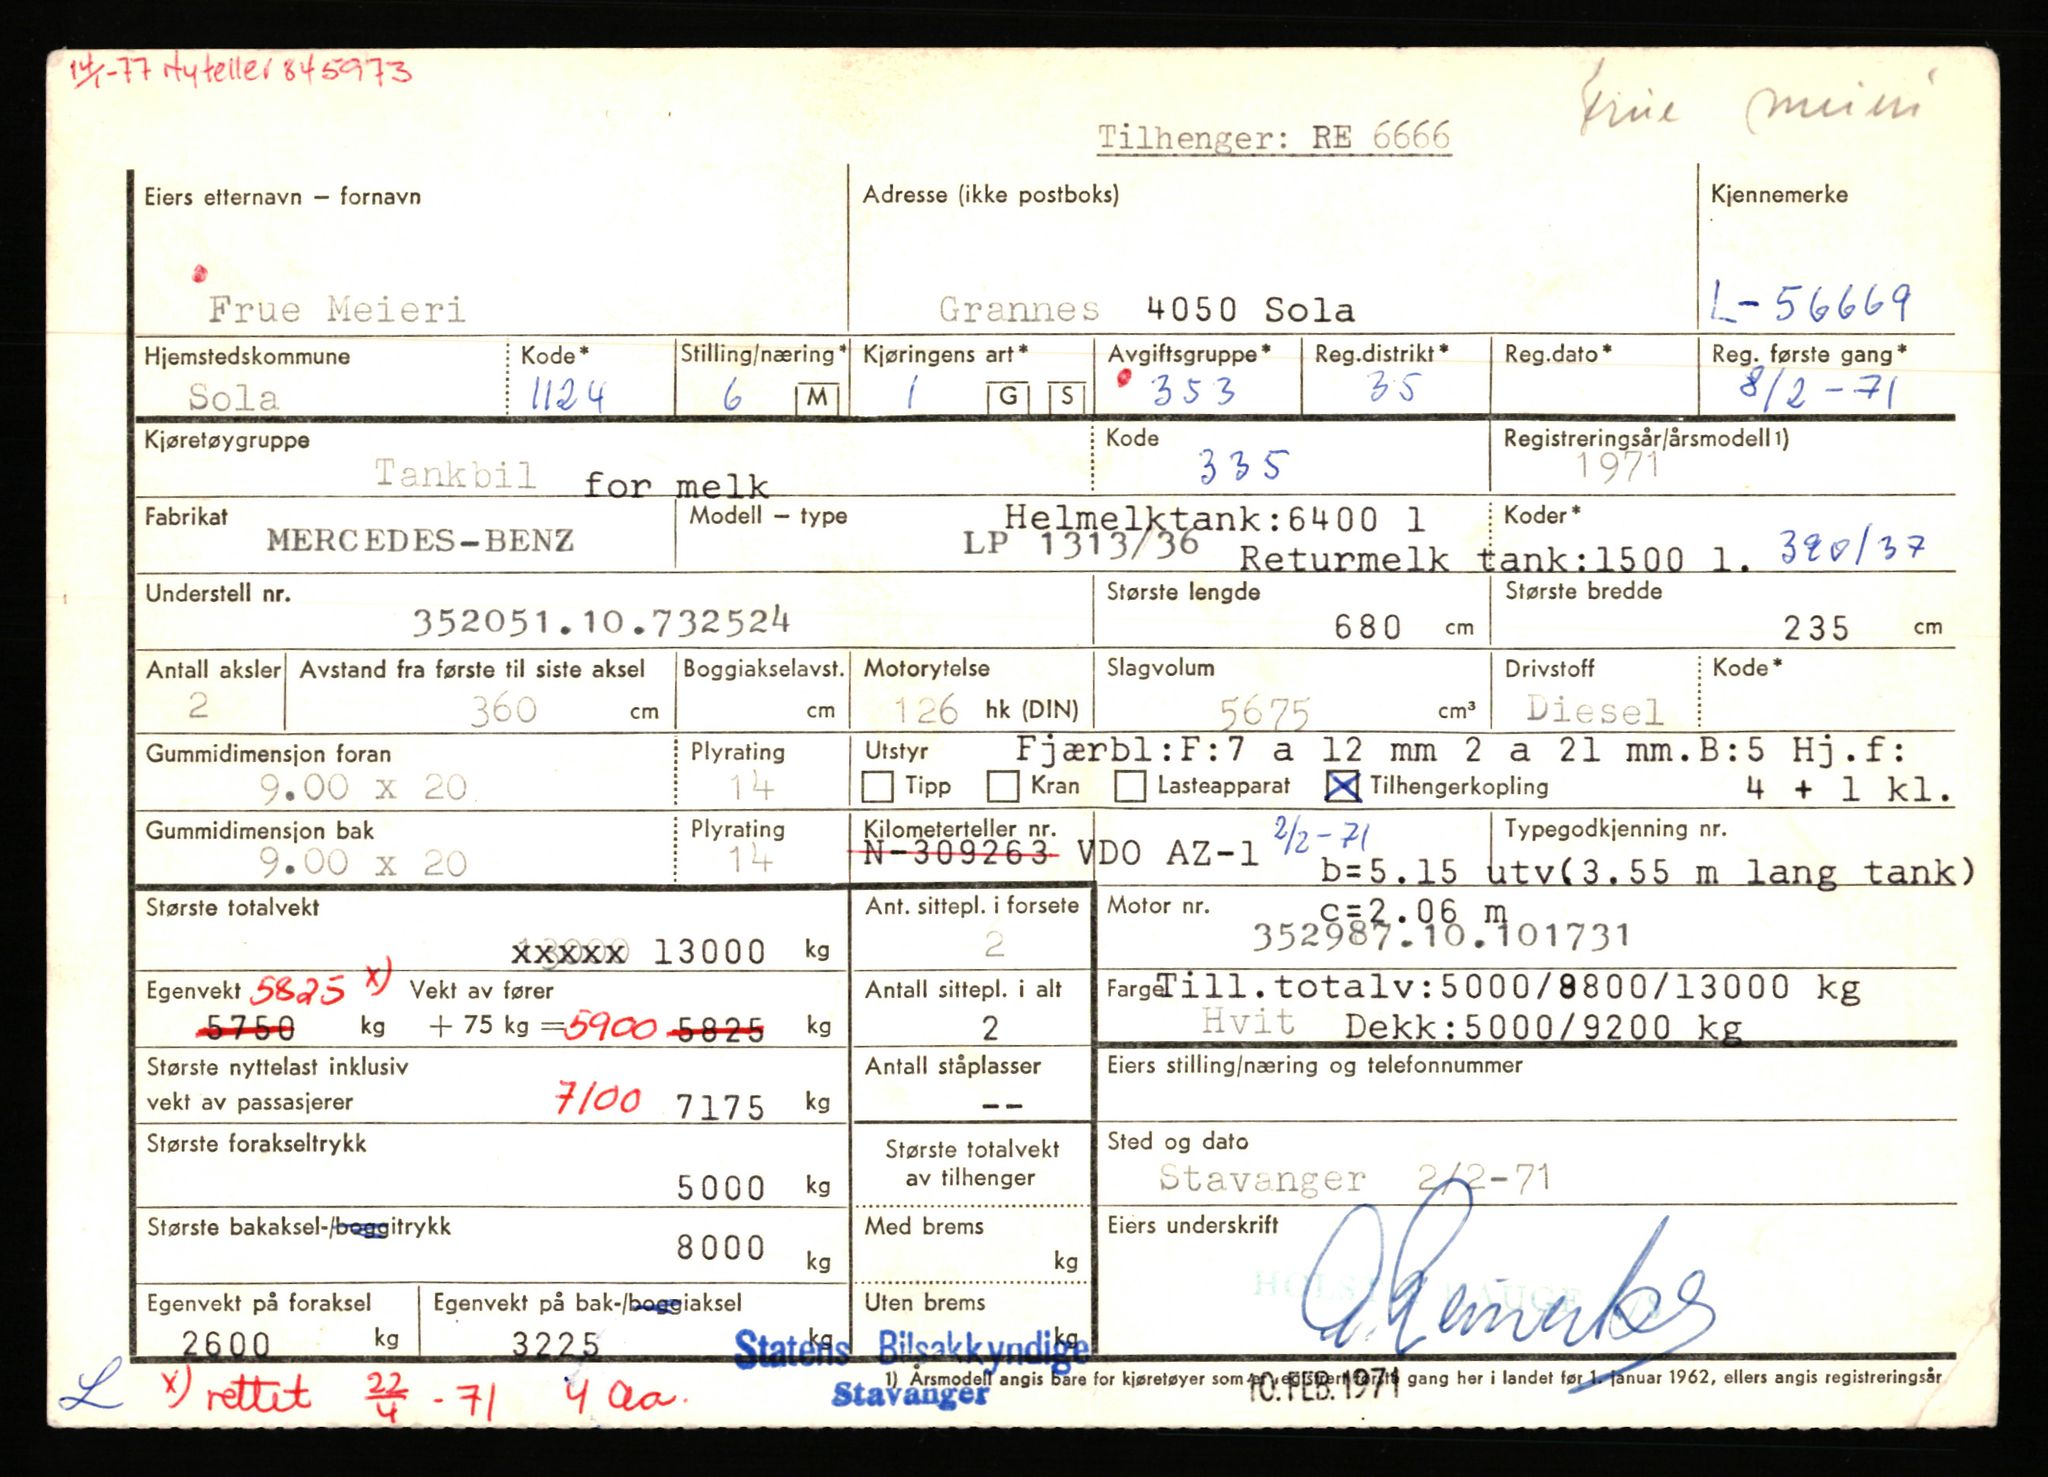 14/1-77 Ny teller 845973
Frue Meieri
Tilhenger: RE 6666
Eiers etternavn – fornavn
Adresse (ikke postboks)
Kjennemerke
Frue Meieri
Grannes 4050 Sola
L-56669
Hjemstedskommune Kode* Stilling/næring* Kjøringens art* Avgiftsgruppe* Reg.distrikt* Reg.dato* Reg. første gang*
Sola 1124 6 M 1 G S 353 35 8/2-71
Kjøretøygruppe Kode Registreringsår/årsmodell 1)
Tankbil for melk 335 1971
Fabrikat Modell – type Helmelktank:6400 l Koder*
MERCEDES-BENZ LP 1313/36 Returmelk tank:1500 l. 320/37
Understell nr. Største lengde Største bredde
352051.10.732524 680 cm 235 cm
Antall aksler Avstand fra første til siste aksel Boggiakselavst. Motorytelse Slagvolum Drivstoff Kode*
2 360 cm cm 126 hk (DIN) 5675 cm³ Diesel
Gummidimensjon foran Plyrating Utstyr Fjærbl:F:7 a 12 mm 2 a 21 mm.B:5 Hj.f:
9.00 x 20 14 Tipp Kran Lasteapparat Tilhengerkopling 4 + 1 kl.
Gummidimensjon bak Plyrating Kilometerteller nr. 2/2-71 Typegodkjenning nr.
9.00 x 20 14 N-309263 VDO AZ-1 b=5.15 utv(3.55 m lang tank)
Største totalvekt Ant. sittepl. i forsete Motor nr. c=2.06 m
xxxxx 13000 kg 2 352987.10.101731
Egenvekt 5825 x) Vekt av fører Antall sittepl. i alt Farge Till.totalv:5000/8800/13000 kg
5750 kg + 75 kg = 5900 5825 kg 2 Hvit Dekk:5000/9200 kg
Største nyttelast inklusiv Antall ståplasser Eiers stilling/næring og telefonnummer
vekt av passasjerer 7100 7175 kg --
Største forakseltrykk Største totalvekt Sted og dato
5000 kg av tilhenger Stavanger 2/2-71
Største bakaksel-/boggitrykk Med brems Eiers underskrift
8000 kg kg
Egenvekt på foraksel Egenvekt på bak-/boggiaksel Uten brems
2600 kg 3225 kg kg
Statens Bilsakkyndige
Stavanger
1) Årsmodell angis bare for kjøretøyer som er registrert første gang her i landet før 1. januar 1962, ellers angis registreringsår
10. FEB. 1971
L x) rettet 22/4-71 4 Aa.